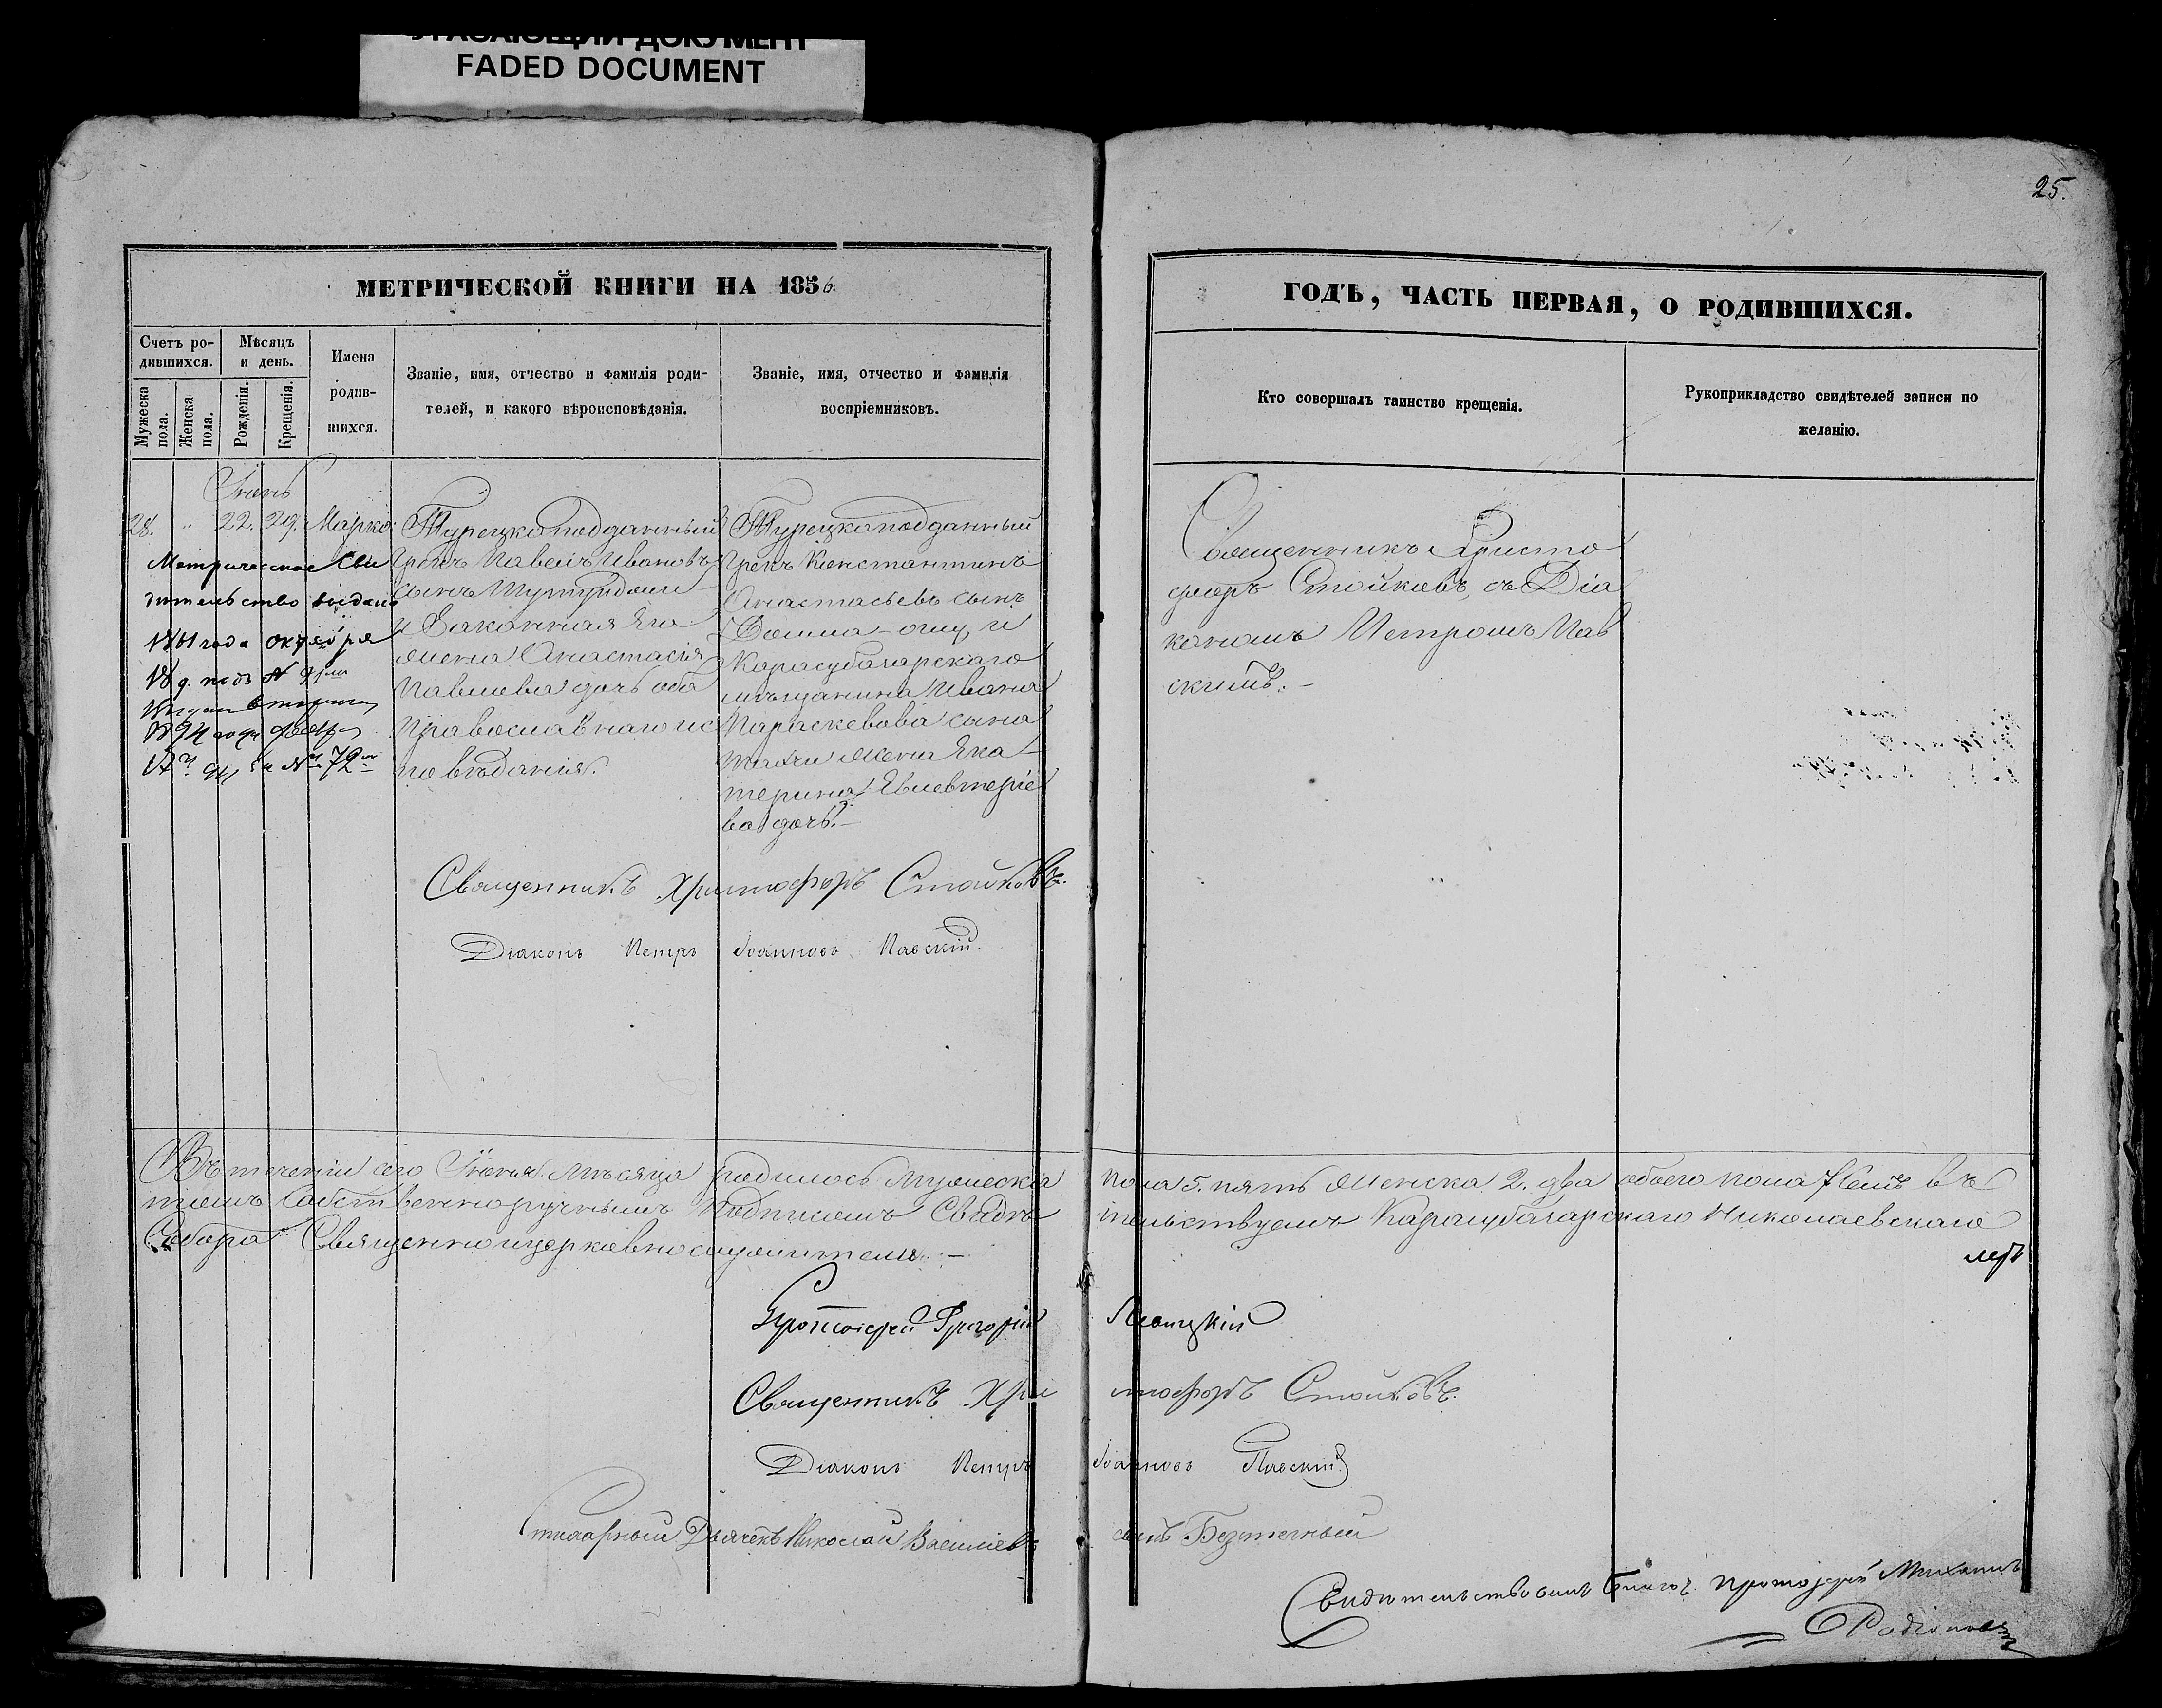 УГАСАЮЩИЙ ДОКУМЕНТ
FADED DOCUMENT
25.
МЕТРИЧЕСКОЙ КНИГИ НА 1856.
ГОДЪ, ЧАСТЬ ПЕРВАЯ, О РОДИВШИХСЯ.
Счетъ ро-
дившихся.
Мѣсяцъ
и день.
Мужеска
пола.
Женска
пола.
Рожденія.
Крещенія.
Имена
родив-
шихся.
Званіе, имя, отчество и фамилія роди-
телей, и какого вѣроисповѣданія.
Званіе, имя, отчество и фамилія
воспріемниковъ.
Кто совершалъ таинство крещенія.
Рукоприкладство свидѣтелей записи по
желанію.
Іюнь
28. " 22. 29. Марко
Метрическое Сви
дительство выдано
1861 года октября
18 д. подъ №
1874 года Февр
за № 72
Турецкоподданный
Грекъ Павелъ Ивановъ
сынъ
и Законная Его
жена Анастасія
Павлова дочь оба
православнаго ис
повѣданія.
Турецкоподданный
Грекъ Константинъ
Анастасьевъ сынъ
и
Карасубазарскаго
мѣщанина Ивана
Параскевова сына
жена Ека-
терина Елевтеріе
ва дочь.-
Священникъ Христо
форъ Стойковъ, съ Діа
кономъ Петромъ Пав
скимъ.-
Священникъ Христофоръ Стойковъ.
Діаконъ Петръ Іоанновъ Павскій.
Въ теченіи сего Іюня мѣсяца родилось Мужеска пола 5. пять Женска 2. два обоего пола 7 семь въ
томъ Собственноручнымъ подписомъ Свидѣтельствуемъ Карасубазарскаго Николаевскаго
Собора Священноцерковнослужители.-
Протоіерей Григорій
Священникъ Христофоръ Стойковъ.
Діаконъ Петръ Іоанновъ Павскій
Дьячекъ Николай Васильевъ сынъ
Свидѣтельствовалъ Благоч. протоіерей Михаилъ
Родіоновъ